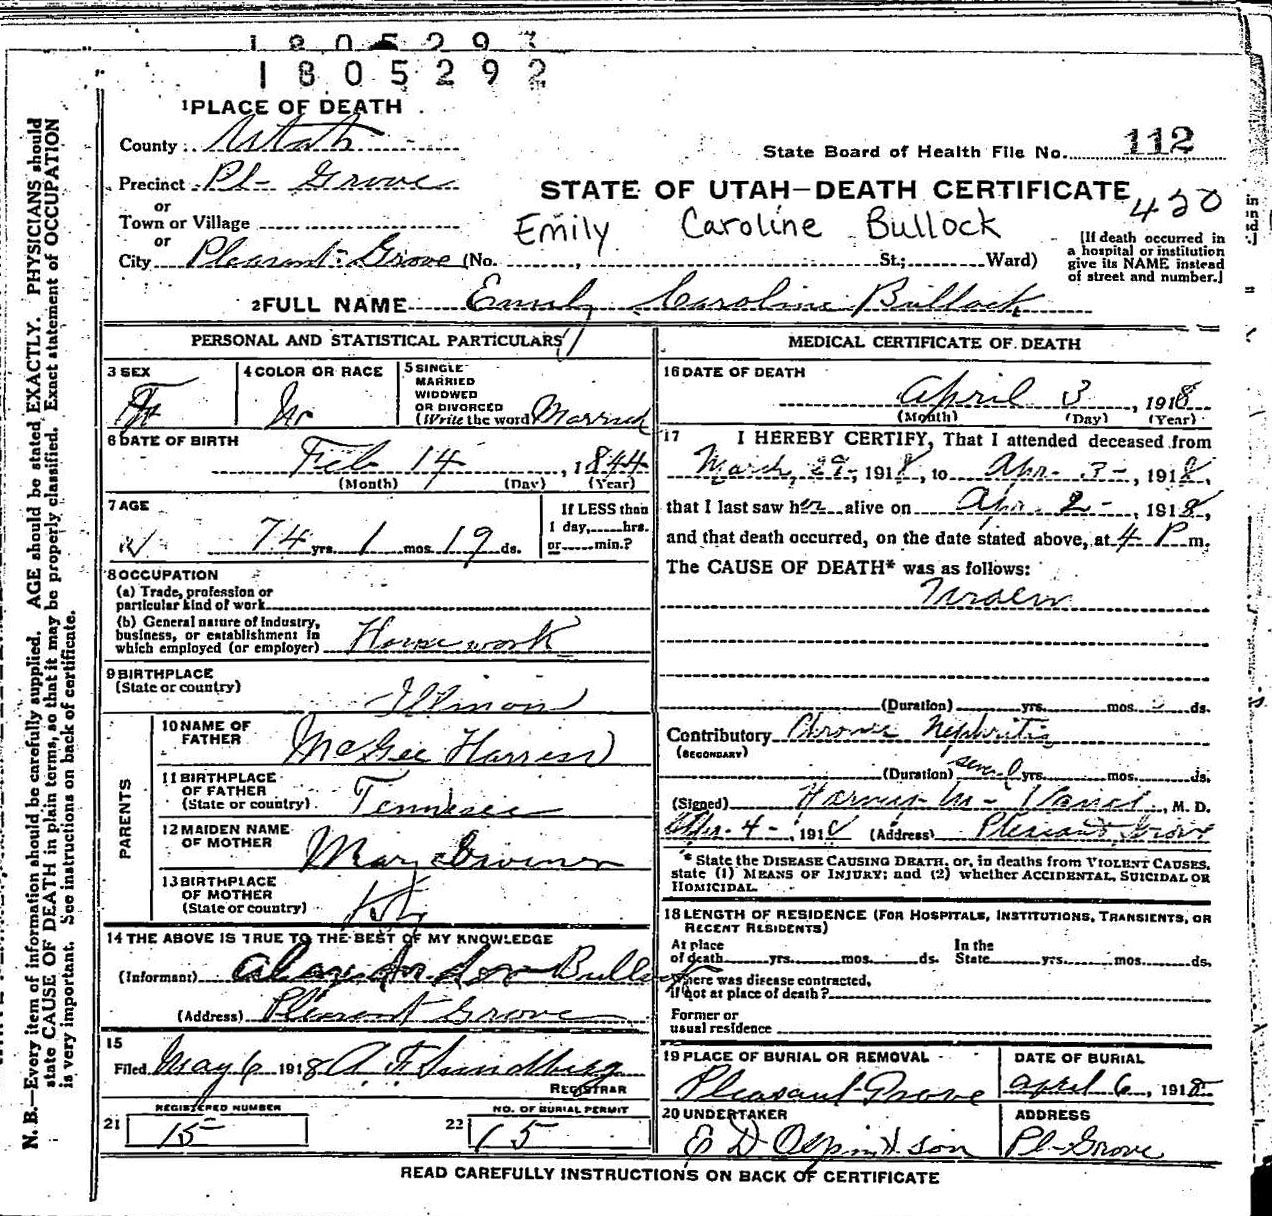 1805293
1805292
1 PLACE OF DEATH
County Utah
State Board of Health File No. 112
Precinct Pl- Grove
STATE OF UTAH—DEATH CERTIFICATE 420
or
Town or Village
Emily Caroline Bullock
or
City Pleasant Grove (No. , St.; Ward)
[If death occurred in
a hospital or institution
give its NAME instead
of street and number.]
2 FULL NAME Emily Caroline Bullock
PERSONAL AND STATISTICAL PARTICULARS
3 SEX
F
4 COLOR OR RACE
W
5 SINGLE
MARRIED
WIDOWED
OR DIVORCED
(Write the word) Married
6 DATE OF BIRTH
Feb 14, 1844
(Month) (Day) (Year)
7 AGE
74 yrs. 1 mos. 19 ds.
If LESS than
1 day, hrs.
or min.?
8 OCCUPATION
(a) Trade, profession or
particular kind of work
(b) General nature of industry,
business, or establishment in
which employed (or employer) Housework
9 BIRTHPLACE
(State or country) Illinois
PARENTS
10 NAME OF
FATHER McGee Harris
11 BIRTHPLACE
OF FATHER
(State or country) Tennesee
12 MAIDEN NAME
OF MOTHER Mary
13 BIRTHPLACE
OF MOTHER
(State or country) Ky
14 THE ABOVE IS TRUE TO THE BEST OF MY KNOWLEDGE
(Informant) Bullock
(Address) Pleasant Grove
15
Filed May 6 1918 A F Sundberg
REGISTRAR
REGISTERED NUMBER
21 15
NO. OF BURIAL PERMIT
22 15
MEDICAL CERTIFICATE OF DEATH
16 DATE OF DEATH
April 3, 1918
(Month) (Day) (Year)
17 I HEREBY CERTIFY, That I attended deceased from
March, 29, 1918, to Apr. 3-, 1918,
that I last saw her alive on Apr. 2-, 1918,
and that death occurred, on the date stated above, at 4 P m.
The CAUSE OF DEATH* was as follows:
(Duration) yrs. mos. ds.
Contributory Chronic Nephritis
(SECONDARY)
(Duration) several yrs. mos. ds.
(Signed) M. D.
Apr. 4-, 1918 (Address) Pleasant Grove
* State the DISEASE CAUSING DEATH, or, in deaths from VIOLENT CAUSES,
state (1) MEANS OF INJURY; and (2) whether ACCIDENTAL, SUICIDAL OR
HOMICIDAL.
18 LENGTH OF RESIDENCE (FOR HOSPITALS, INSTITUTIONS, TRANSIENTS, OR
RECENT RESIDENTS)
At place
of death yrs. mos. ds.
In the
State yrs. mos. ds.
Where was disease contracted,
if not at place of death?
Former or
usual residence
19 PLACE OF BURIAL OR REMOVAL
Pleasant Grove
DATE OF BURIAL
April 6, 1918
20 UNDERTAKER
E D Olpin & son
ADDRESS
Pl- Grove
READ CAREFULLY INSTRUCTIONS ON BACK OF CERTIFICATE
N. B.—Every item of information should be carefully supplied. AGE should be stated EXACTLY. PHYSICIANS should
state CAUSE OF DEATH in plain terms, so that it may be properly classified. Exact statement of OCCUPATION
is very important. See instructions on back of certificate.